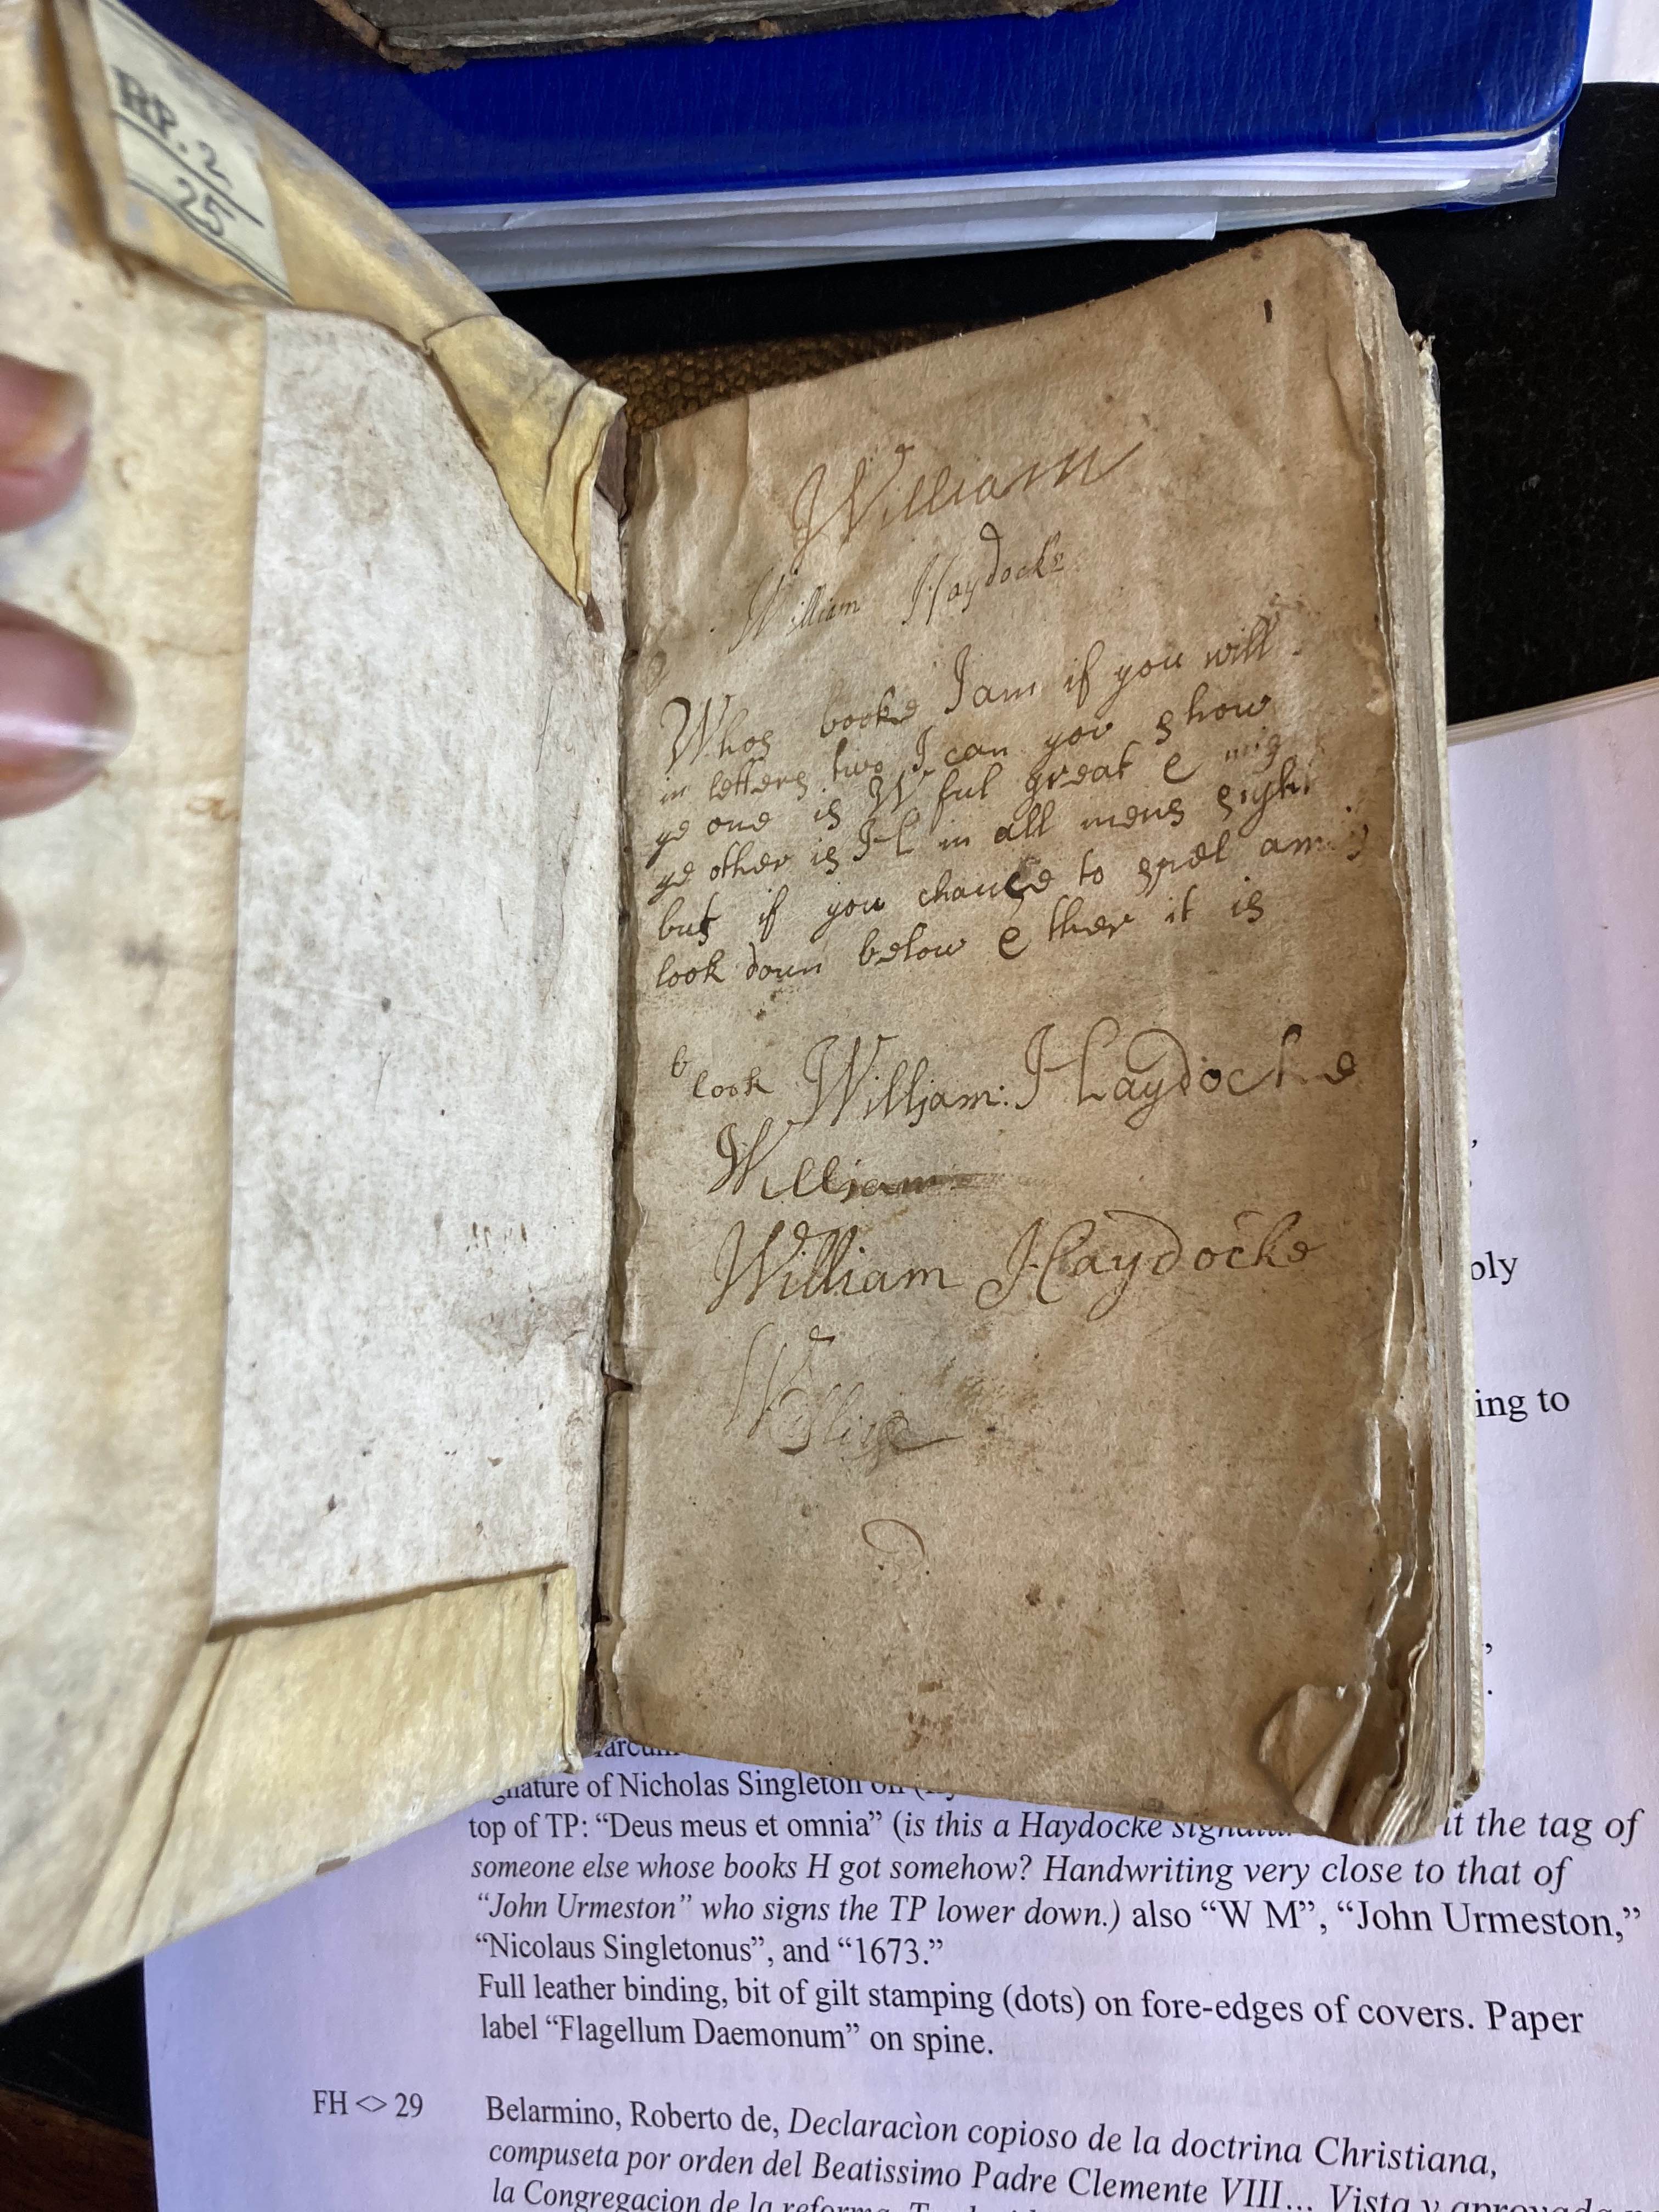 RP.2
25
William
William Haydocke
Whos booke I am if you will
in letters two I can you show
ye one is W ful great &
ye other is H in all mens sight
but if you chance to spel
look doun below & ther it is
look William: Haydocke
William
William Haydocke
ply
ing to
signature of Nicholas Singleton on
top of TP: “Deus meus et omnia” (is this a Haydocke it the tag of
someone else whose books H got somehow? Handwriting very close to that of
“John Urmeston” who signs the TP lower down.) also “W M”, “John Urmeston,”
“Nicolaus Singletonus”, and “1673.”
Full leather binding, bit of gilt stamping (dots) on fore-edges of covers. Paper
label “Flagellum Daemonum” on spine.
FH <> 29 Belarmino, Roberto de, Declaracìon copioso de la doctrina Christiana,
compuseta por orden del Beatissimo Padre Clemente VIII... Vista y aprovada
la Congregacion de la reforma.